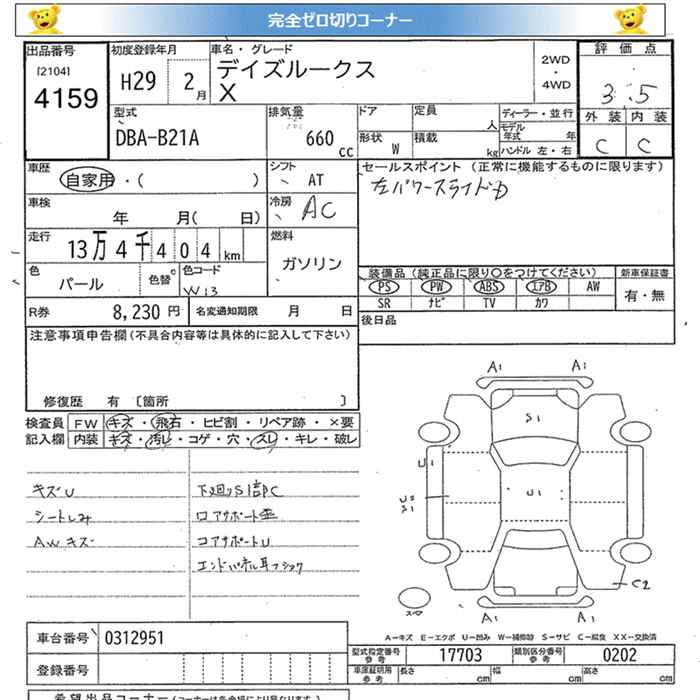 完全ゼロ切りコーナー
出品番号 初度登録年月 車名・グレード 2WD・4WD 評価点
[2104] 4159 H29 2月 デイズルークス X 3.5
型式 排気量 ドア 定員 人 ディーラー・並行 外装 内装
DBA-B21A 660cc 形状 W 積載 kg モデル年式 年 ハンドル 左・右 C C
車歴 シフト セールスポイント (正常に機能するものに限ります)
自家用・( ) AT 左パワースライドD
車検 冷房
年 月( 日) AC
走行 燃料
13万4千404km ガソリン
色 色替 色コード 装備品(純正品に限り〇をつけてください) 新車保証書
パール W13 PS PW ABS エアB AW 有・無
SR ナビ TV カワ
R券 8,230円 名変通知期限 月 日 後日品
注意事項申告欄(不具合内容等は具体的に記入して下さい)
修復歴 有 [箇所 ]
検査員 FW キズ・飛石・ヒビ割・リペア跡・×要
記入欄 内装 キズ・汚レ・コゲ・穴・スレ・キレ・破レ
キズU 下廻りS1部C
シートしみ ロアサポート歪
AWキズ コアサポートU
A1 A1
S1
U1 U1
U2
S1
C2
A1 A1
A-キズ E-エクボ U-凹み W-補修跡 S-サビ C-腐食 XX-交換済
車台番号 0312951
型式指定番号 参考 17703 類別区分番号 参考 0202
登録番号 車庫証明用 参考 長さ cm 幅 cm 高さ cm
希望出品コーナー